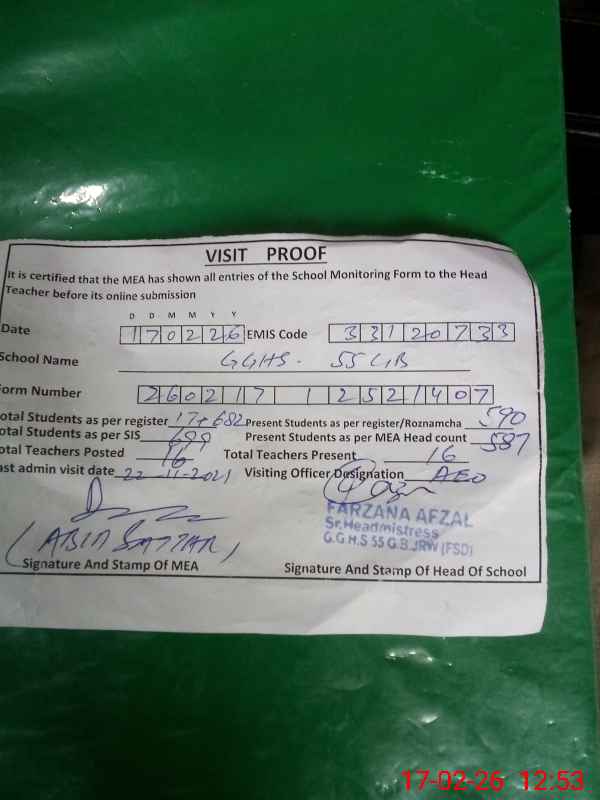 VISIT PROOF
It is certified that the MEA has shown all entries of the School Monitoring Form to the Head
Teacher before its online submission
D D M M Y Y
Date 170226 EMIS Code 33120733
School Name GGHS. 55 GB
Form Number 260217 1 2521407
Total Students as per register 17+682 Present Students as per register/Roznamcha 590
Total Students as per SIS 699 Present Students as per MEA Head count 587
Total Teachers Posted 16 Total Teachers Present 16
Last admin visit date 22-11-2021 Visiting Officer Designation AEO
FARZANA AFZAL
Sr. Headmistress
G.G.H.S 55 G.B JRW (FSD)
(ABID SATTAR)
Signature And Stamp Of MEA Signature And Stamp Of Head Of School
17-02-26 12:53